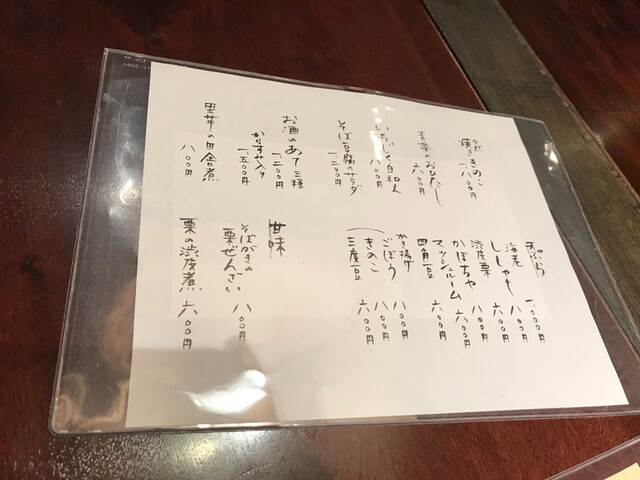 焼ききのこ 八〇〇円
青菜のおひたし 六〇〇円
いちじく白和え 八〇〇円
そば豆腐のサラダ 一、二〇〇円
お酒のあて三種 一、二〇〇円
からすみ入り 一、五〇〇円
里芋の田舎煮 八〇〇円
天ぷら
海老 一、〇〇〇円
ししゃも 八〇〇円
渋皮栗 八〇〇円
かぼちゃ 六〇〇円
マッシュルーム
四角豆 六〇〇円
かき揚げ
ごぼう 八〇〇円
きのこ 八〇〇円
三度豆 六〇〇円
甘味
そばがきの
栗ぜんざい 八〇〇円
栗の渋皮煮 六〇〇円